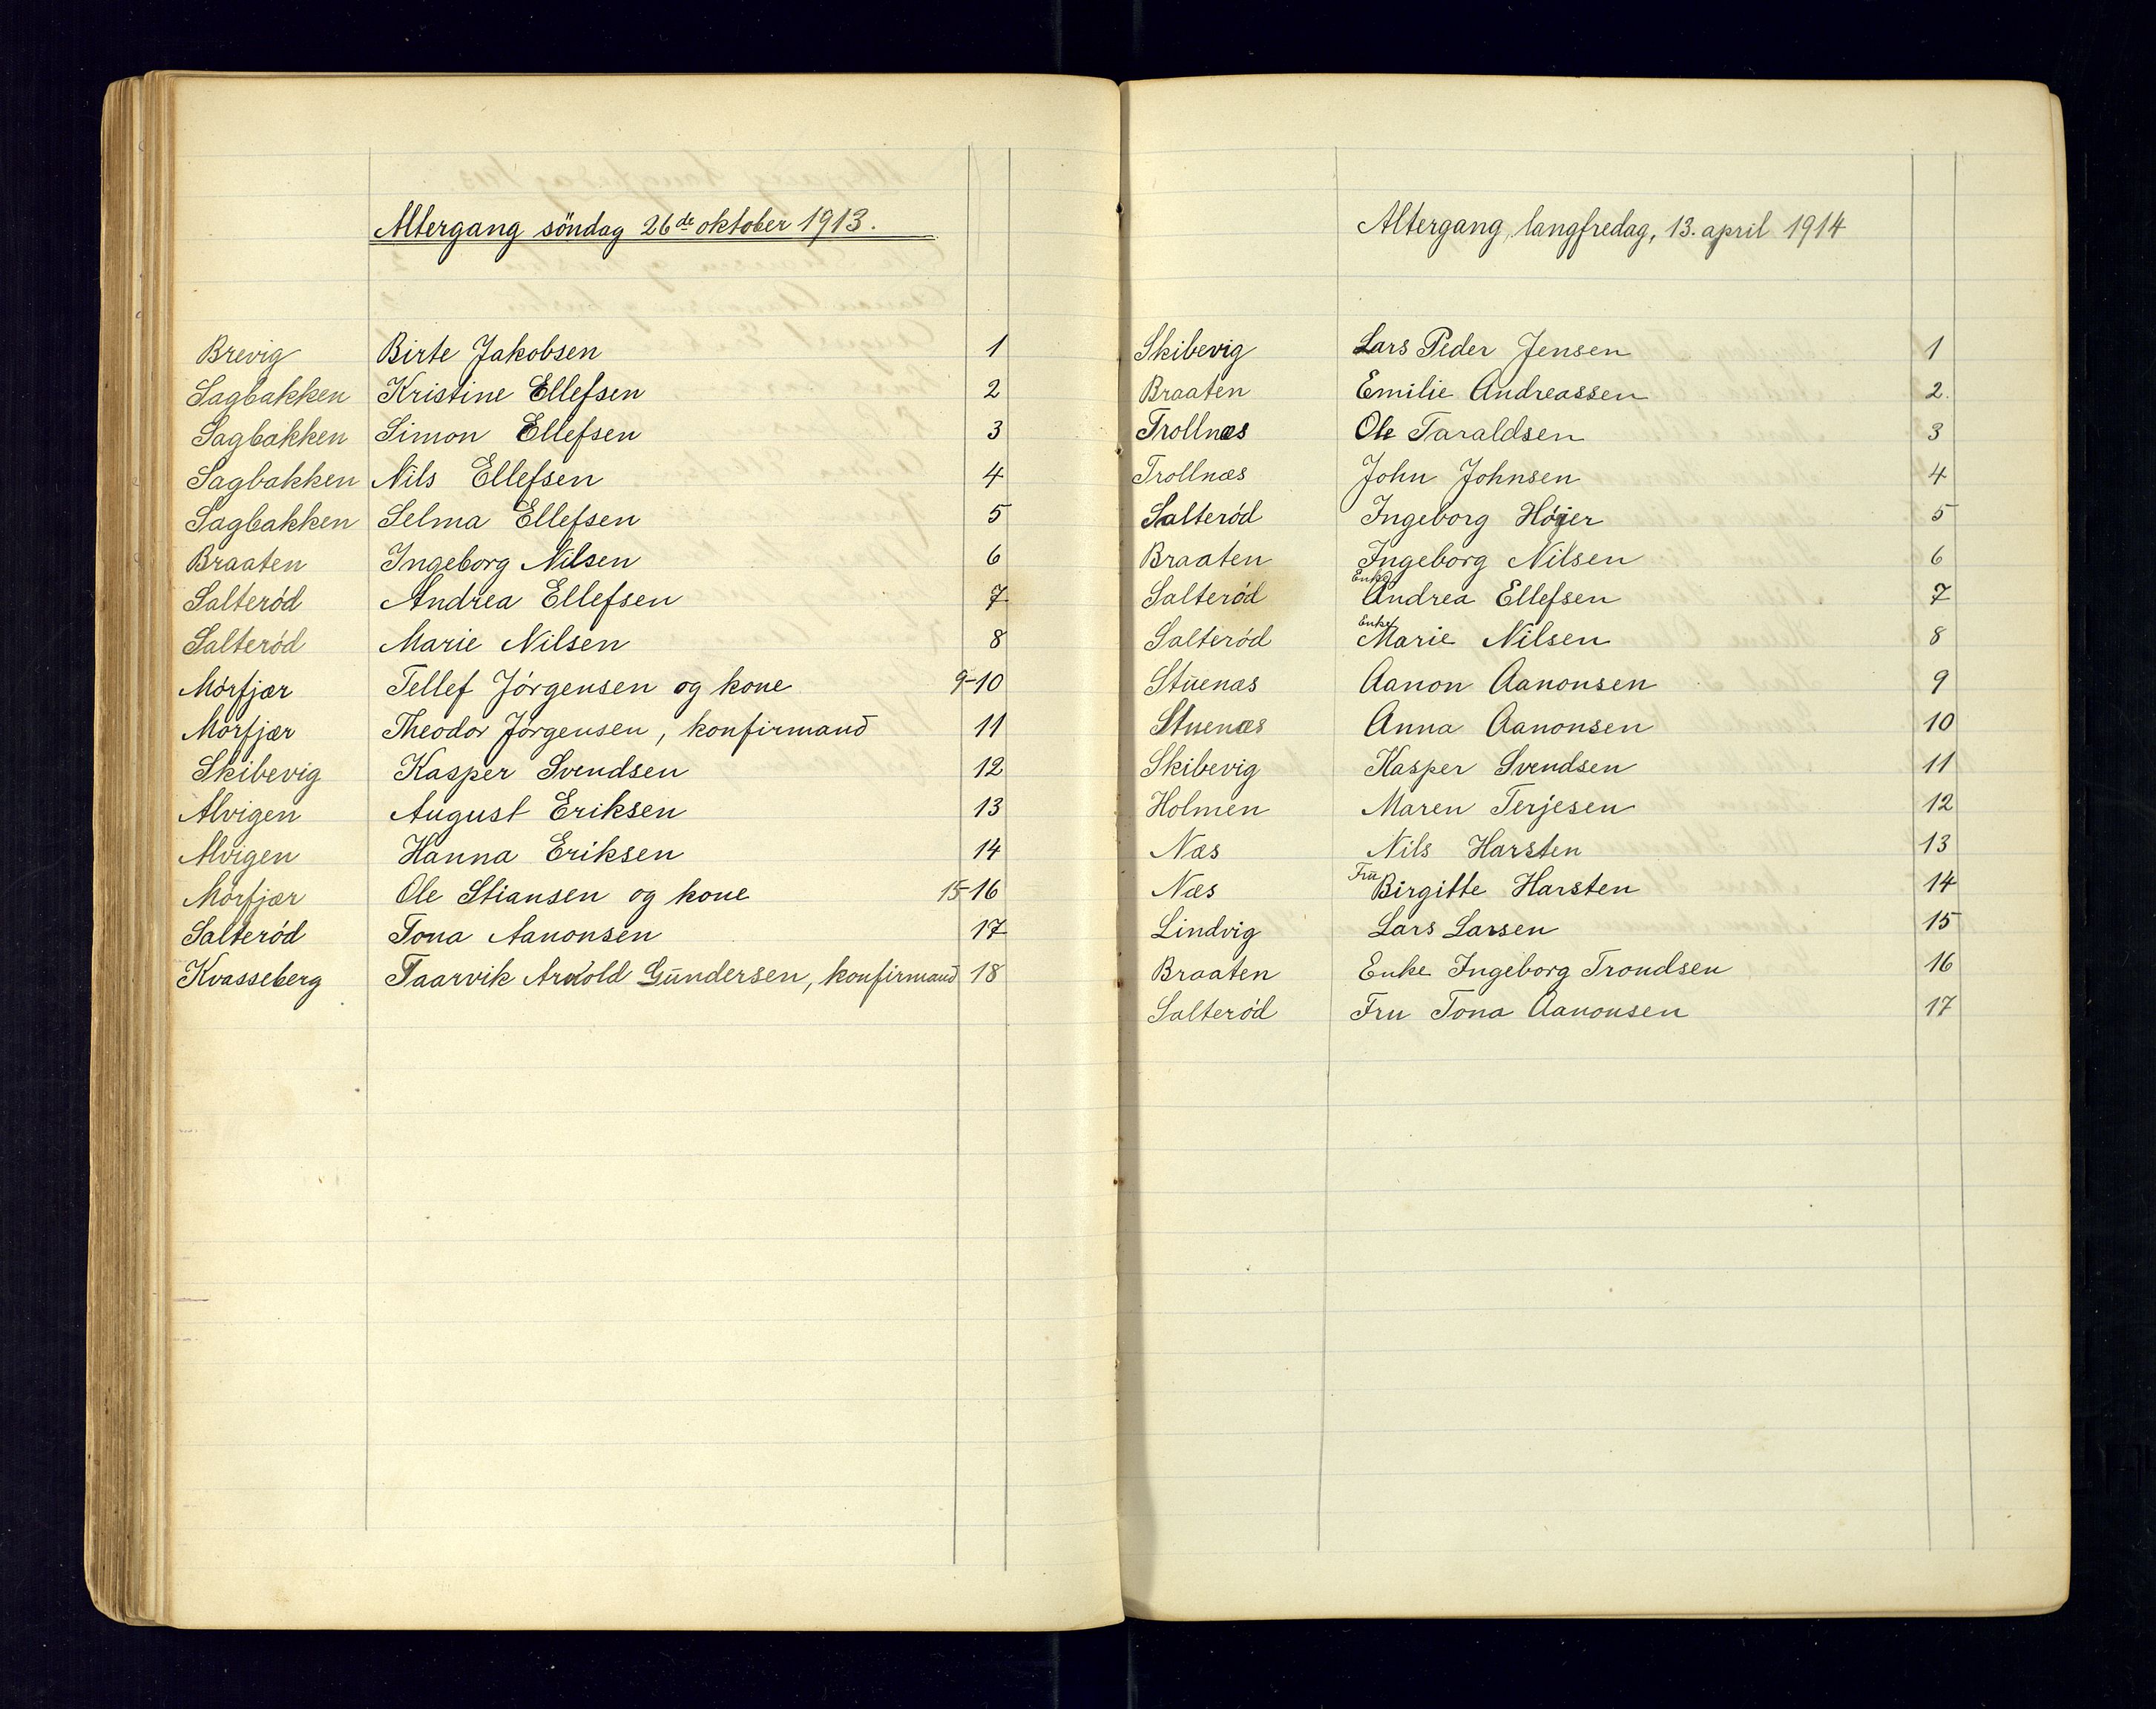 Altergang söndag 26de oktober 1913.
Brevig Birte Jakobsen 1
Sagbakken Kristine Ellefsen 2
Sagbakken Simon Ellefsen 3
Sagbakken Nils Ellefsen 4
Sagbakken Selma Ellefsen 5
Braaten Ingeborg Nilsen 6
Salteród Andrea Ellefsen 7
Salteród Marie Nilsen 8
Mórfjær Tellef Jórgensen og kone 9-10
Mórfjær Theodor Jórgensen, konfirmand 11
Skibevig Kasper Svendsen 12
Alvigen August Eriksen 13
Alvigen Hanna Eriksen 14
Mórfjær Ole Stiansen og kone 15-16
Salteród Tona Aanonsen 17
Kvasseberg Taarvik Arnold Gundersen, konfirmand 18
Altergang, langfredag, 13. april 1914
Skibevig Lars Peder Jensen 1
Braaten Emilie Andreassen 2.
Trollnæs Ole Taraldsen 3
Trollnæs John Johnsen 4
Salteród Ingeborg Hójer 5
Braaten Ingeborg Nilsen 6
Salteród Enke Andrea Ellefsen 7
Salteród Enke Marie Nilsen 8
Stuenæs Aanon Aanonsen 9
Stuenæs Anna Aanonsen 10
Skibevig Kasper Svendsen 11
Holmen Maren Terjesen 12
Næs Nils Harsten 13
Næs Fru Birgitte Harsten 14
Lindvig Lars Larsen 15
Braaten Enke Ingeborg Trondsen 16
Salteród Fru Tona Aanonsen 17